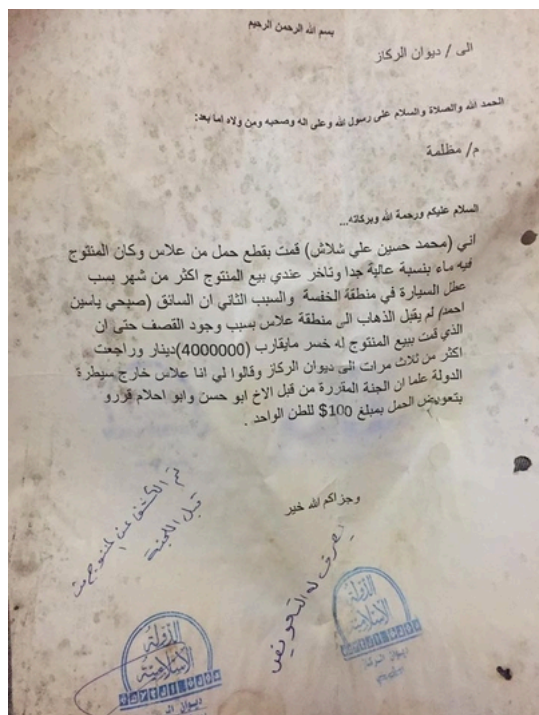 بسم الله الرحمن الرحيم
الى / ديوان الركاز
الحمد الله والصلاة والسلام على رسول الله وعلى اله وصحبه ومن ولاه اما بعد:
م/ مظلمة
السلام عليكم ورحمة الله وبركاته...
اني (محمد حسين علي شلاش) قمت بقطع حمل من علاس وكان المنتوج
فيه ماء بنسبة عالية جدا وتاخر عندي بيع المنتوج اكثر من شهر بسب
عطل السيارة في منطقة الخفسة والسبب الثاني ان السائق (صبحي ياسين
احمد) لم يقبل الذهاب الى منطقة علاس بسبب وجود القصف حتى ان
الذي قمت ببيع المنتوج له خسر مايقارب (4000000)دينار وراجعت
اكثر من ثلاث مرات الى ديوان الركاز وقالوا لي انا علاس خارج سيطرة
الدولة علما ان الجنة المقررة من قبل الاخ ابو حسن وابو احلام قررو
بتعويض الحمل بمبلغ 100$ للطن الواحد .
وجزاكم الله خير
تم الكشف عن المنتوج من
قبل اللجنة
يصرف له التعويض
الدولة
الإسلامية
ديوان الركاز
الدولة
الإسلامية
ديوان